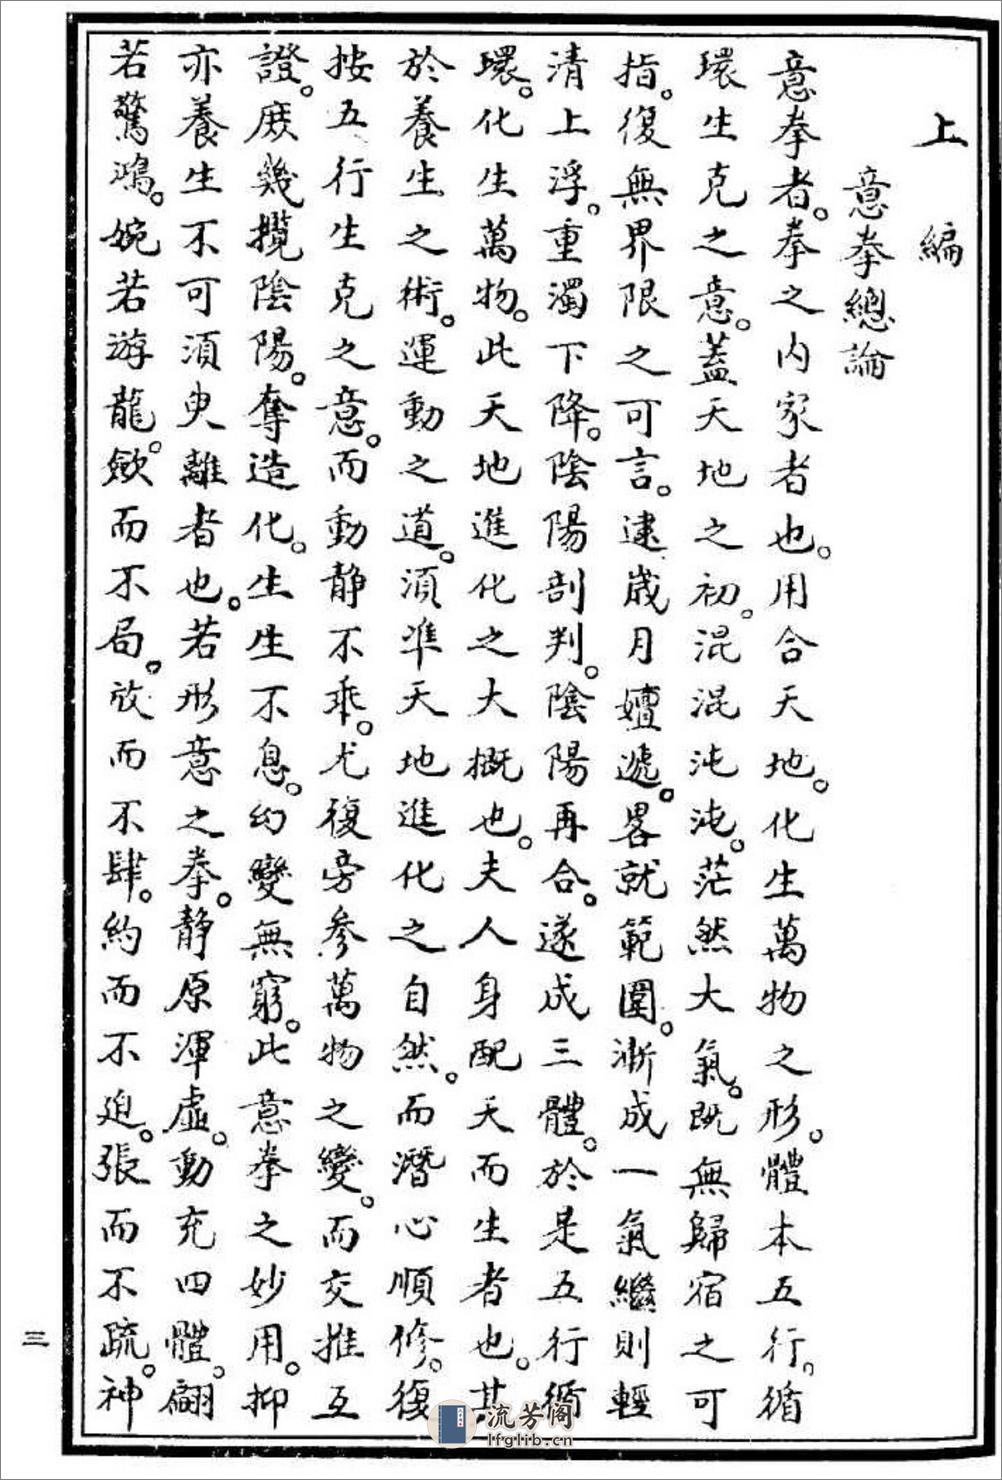 上編
意拳總論
意拳者。拳之内家者也。用合天地。化生萬物之形。體本五行。循
環生克之意。蓋天地之初。混混沌沌。茫然大氣。既無歸宿之可
指。復無界限之可言。逮歲月嬗遞。畧就範圍。漸成一氣繼則輕
清上浮。重濁下降。陰陽剖判。陰陽再合。遂成三體。於是五行循
環。化生萬物。此天地進化之大概也。夫人身配天而生者也。其
於養生之術。運動之道。須準天地進化之自然。而潛心順修。復
按五行生克之意。而動靜不乖。尤復旁參萬物之變。而交推互
證。庶幾攬陰陽。奪造化。生生不息。幻變無窮。此意拳之妙用。抑
亦養生不可須臾離者也。若形意之拳。靜原渾虛。動充四體。翩
若驚鴻。婉若游龍。斂而不局。放而不肆。約而不迫。張而不疏。神
三
流芳阁
lfglib.cn